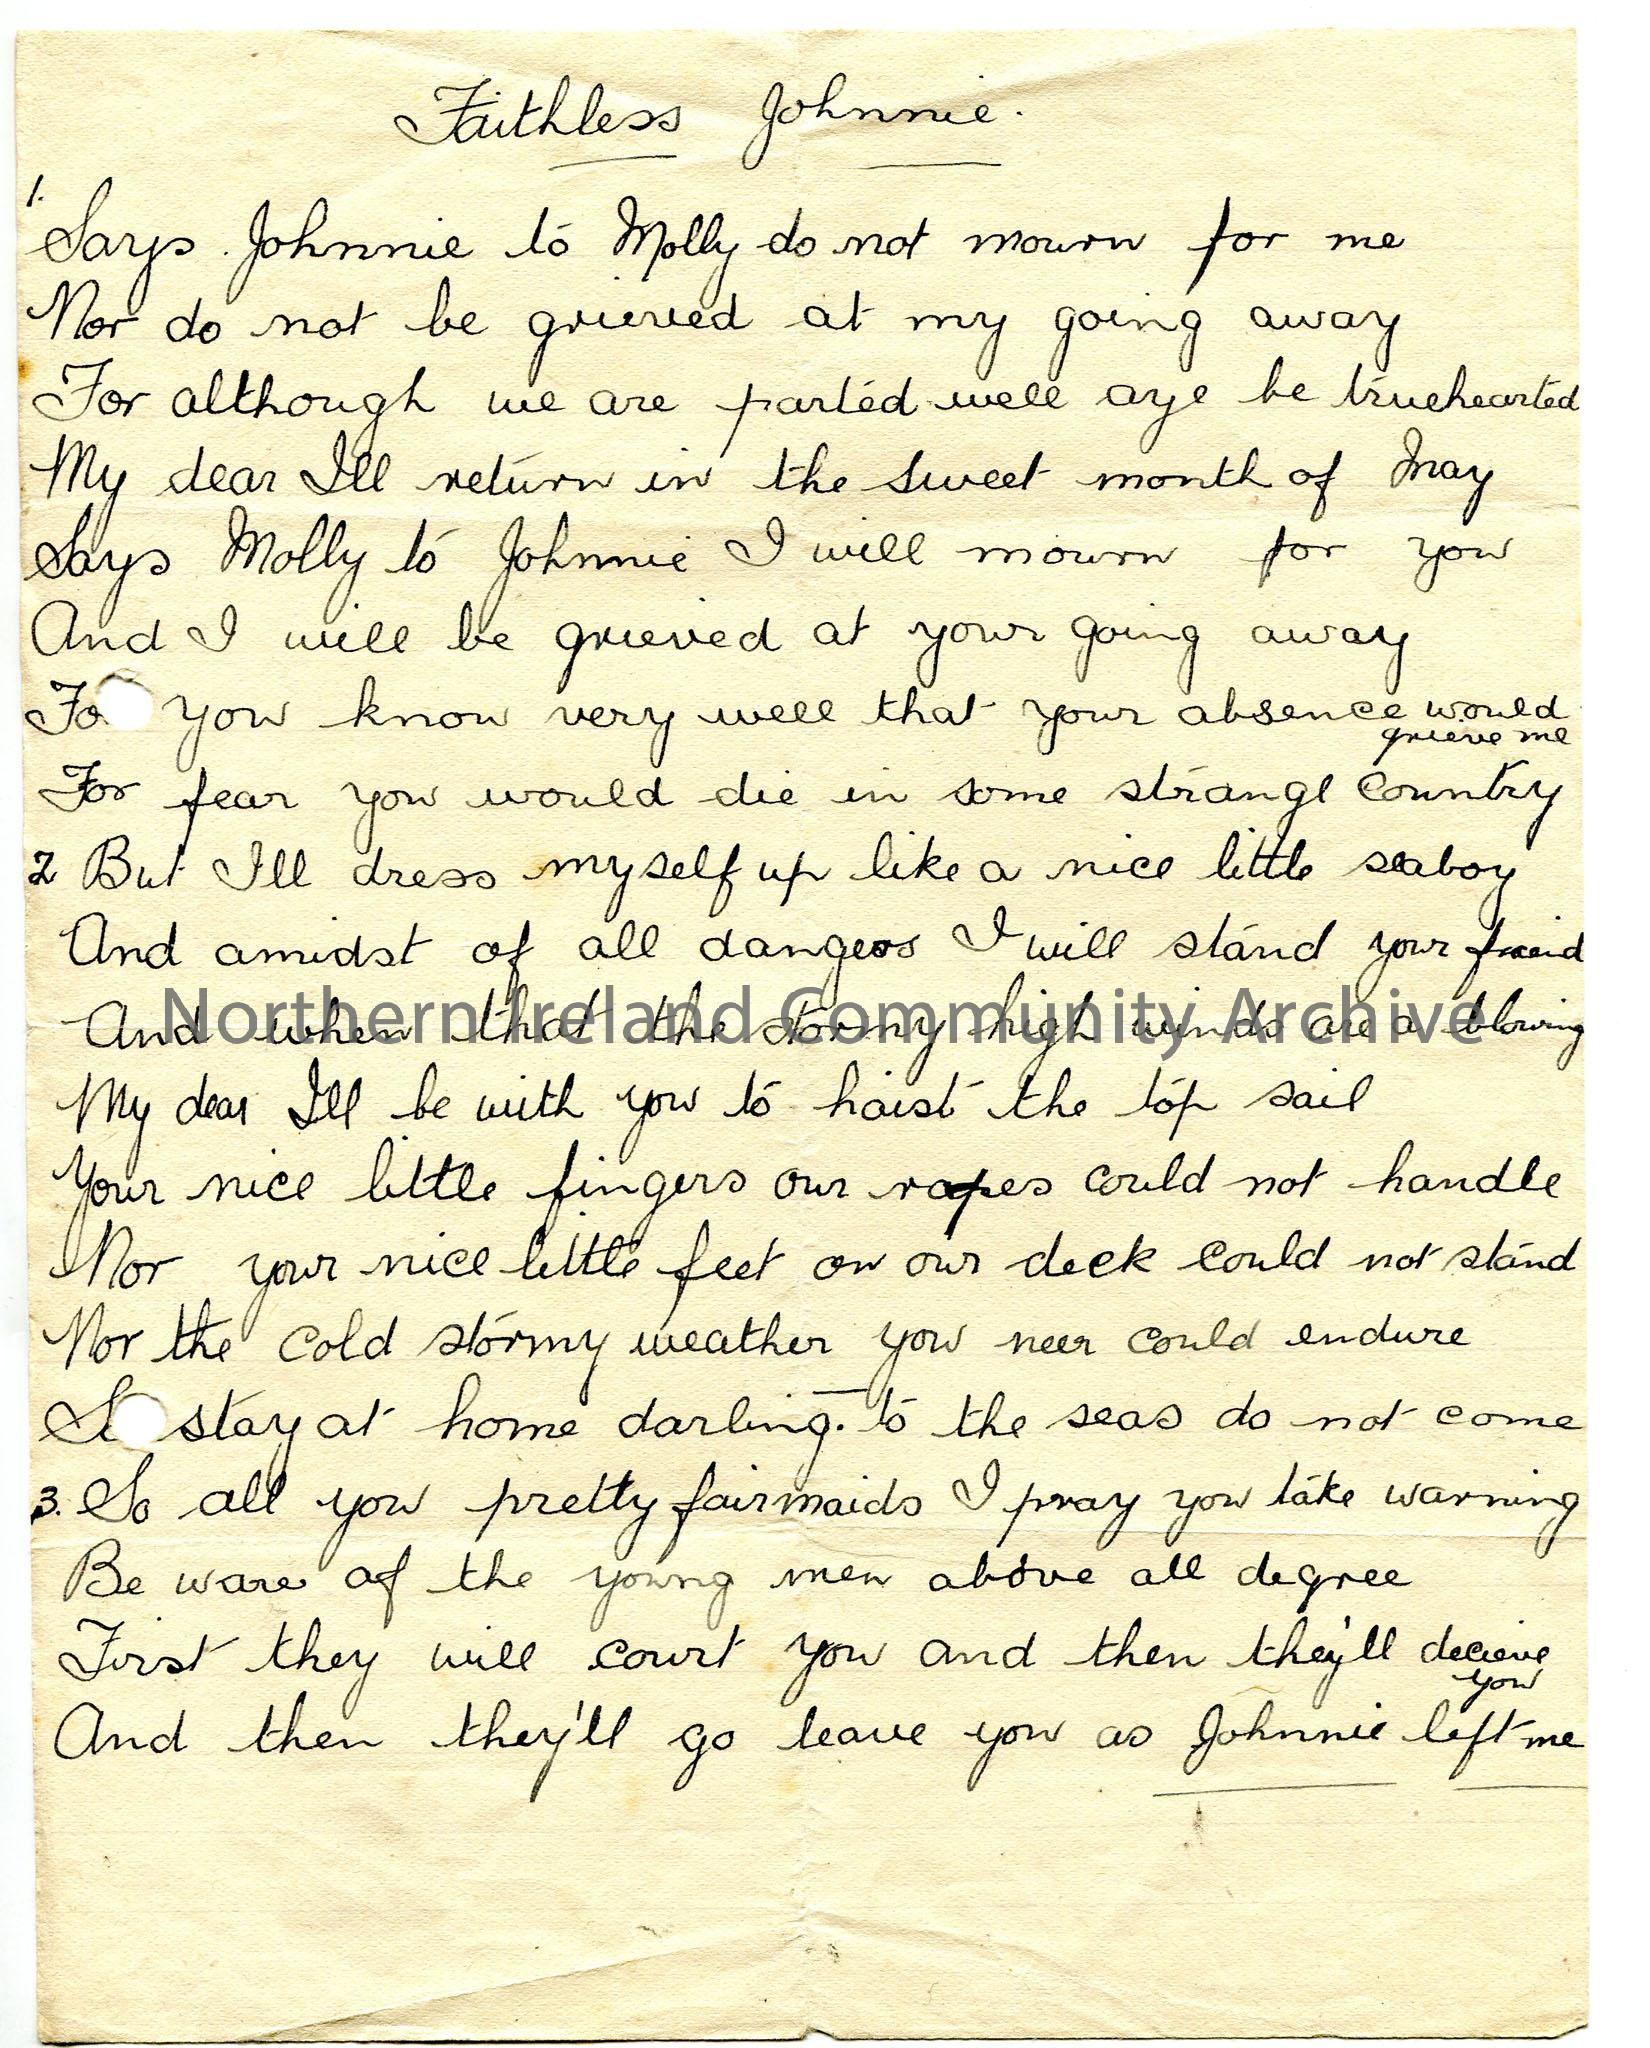 Faithless Johnnie.
1.
Says Johnnie to Molly do not mourn for me
Nor do not be grieved at my going away
For although we are parted well aye be truehearted
My dear Ill return in the sweet month of May
Says Molly to Johnnie I will mourn for you
And I will be grieved at your going away
Fo you know very well that your absence would
grieve me
For fear you would die in some strange country
2 But Ill dress myself up like a nice little seaboy
And amidst of all dangers I will stand your friend
And when that the stormy high winds are a blowing
Northern Ireland Community Archive
My dear Ill be with you to hoist the top sail
Your nice little fingers our ropes could not handle
Nor your nice little feet on our deck could not stand
Nor the cold stormy weather you neer could endure
S stay at home darling. to the seas do not come
3. So all you pretty fairmaids I pray you take warning
Be ware of the young men above all degree
First they will court you and then they'll decieve
you
And then they'll go leave you as Johnnie left me